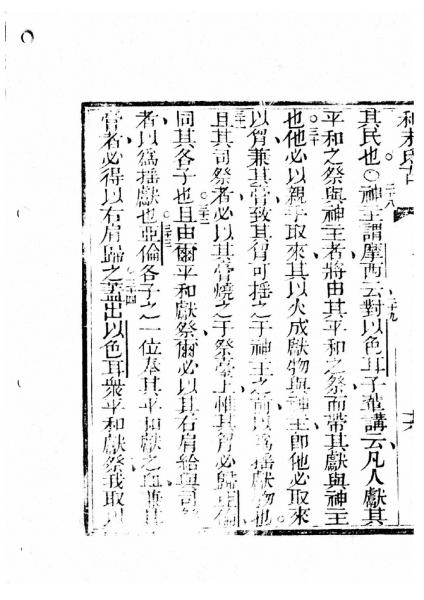 利未氏古 十六
其民也○二十八神主謂摩西云二十九對以色耳子輩講云凡人獻其
平和之祭與神主者將由其平和之祭而帶其獻與神主
也三十他必以親手取來其以火成獻物與神主即他必取來
以胷兼其膏致其胷可搖之于神主之前以為搖獻物也
三十一且其司祭者必以其膏燒之于祭臺上惟其胷必歸亞倫
同其各子也三十二且由爾平和獻祭爾必以其右肩給與司祭
者以為搖獻也三十三亞倫各子之一位奉其平和獻之血兼其
膏者必得以右肩歸之三十四蓋出以色耳衆平和獻祭我取以